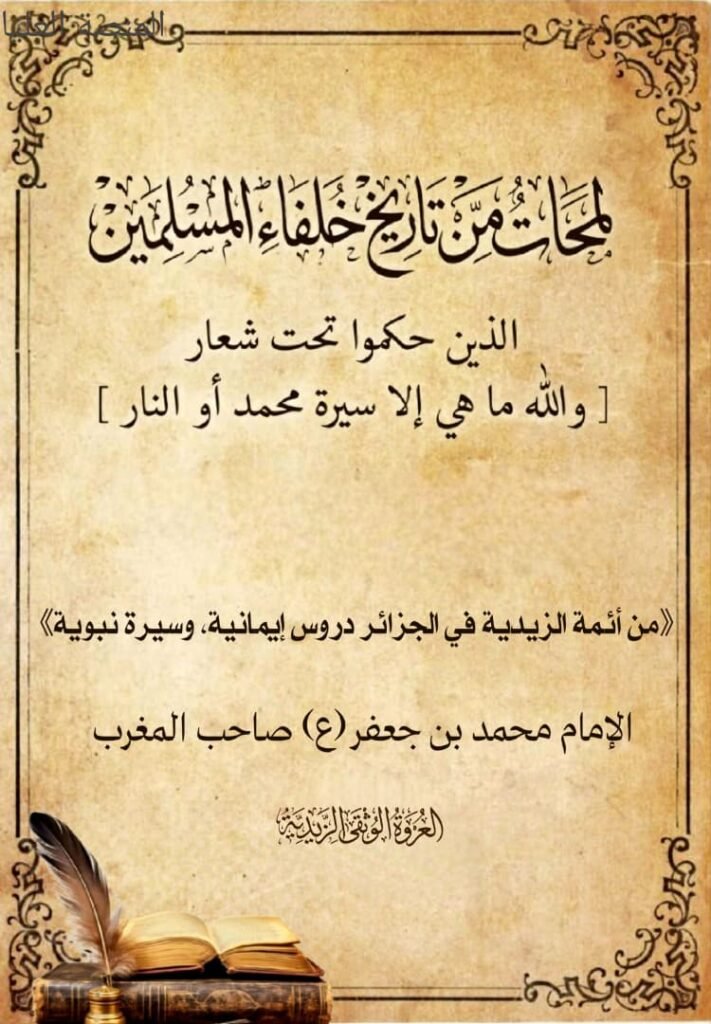 لمَحَاتٌ مِّنْ تَارِيخِ خُلَفَاءِ المُسْلِمَيْن
الذين حكموا تحت شعار
[ والله ما هي إلا سيرة محمد أو النار ]
《من أئمة الزيدية في الجزائر دروس إيمانية، وسيرة نبوية》
الإمام محمد بن جعفر (ع) صاحب المغرب
العُرْوَةُ الوُثْقَى الزَّيْدِيَّةُ